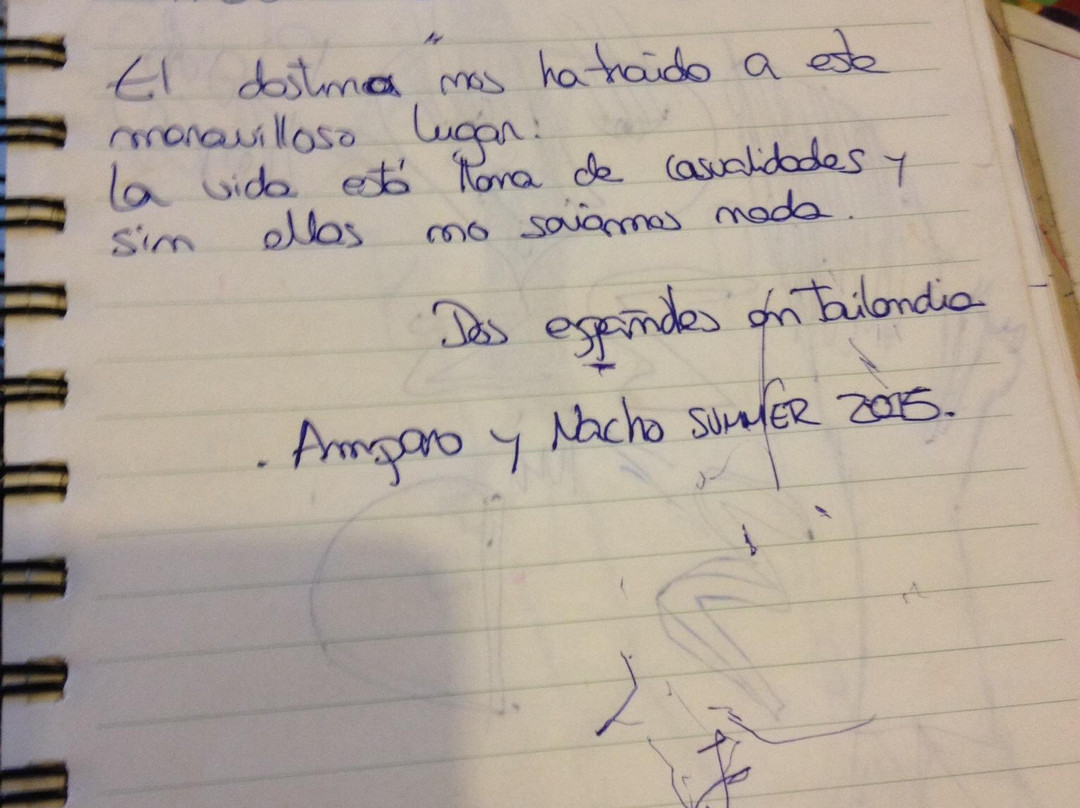 El destino nos ha traido a este
maravilloso lugar:
la vida está llena de casualidades y
sin ellas no seriamos nada.
Dos españoles en Tailandia
. Amparo y Nacho SUMMER 2015.